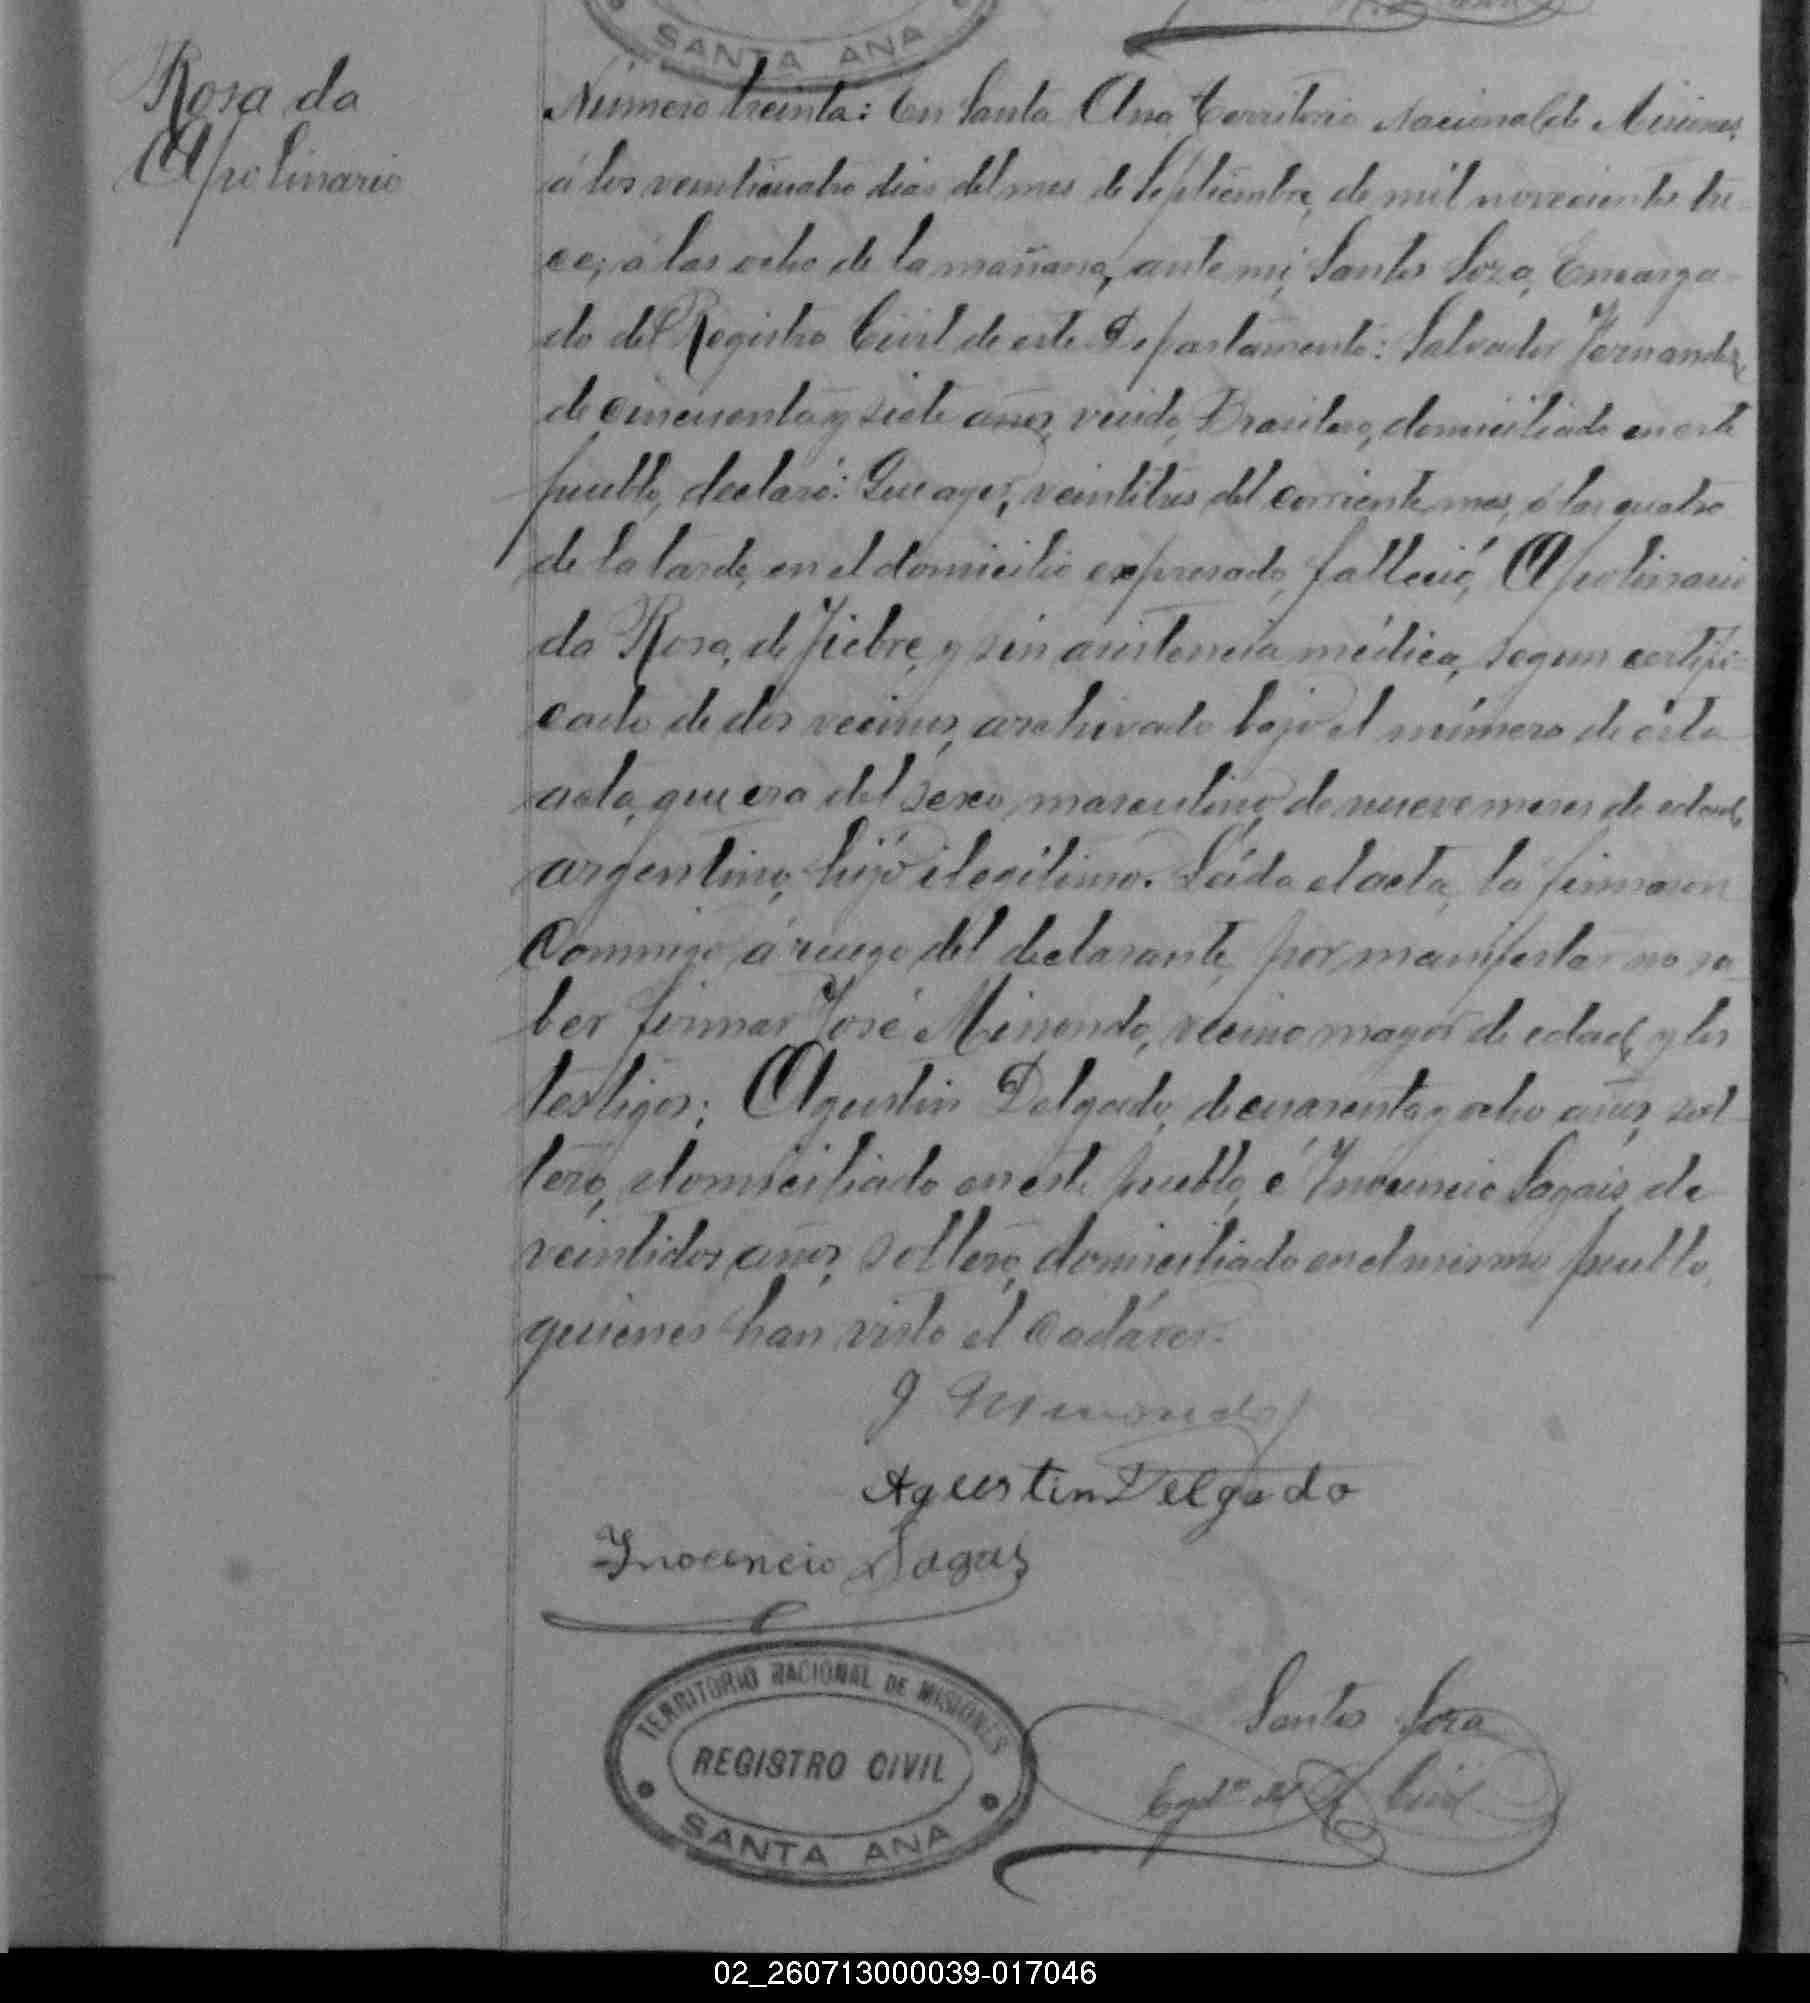 SANTA ANA
Rosa da
Apolinario
Número treinta: En Santa Ana, Territorio Nacional de Misiones,
á los veinticuatro dias del mes de Septiembre, de mil novecientos tre-
ce; á las ocho de la mañana, ante mí, Santos Soza, Encarga-
do del Registro Civil de este Departamento: Salvador Fernandez,
de cincuenta y siete años, viudo, Brasilero, domiciliado en este
pueblo, declaró: Que ayer, veintitres del corriente mes, á las quatro
de la tarde, en el domicilio expresado, falleció, Apolinario
da Rosa, de fiebre, y sin asistencia médica, segun certifi-
cado de dos vecinos, archivado bajo el número de ésta
acta, que era del sexo masculino, de nueve meses de edad,
argentino, hijo ilegítimo. Leída el acta, la firmaron
conmigo á ruego del declarante, por manifestar no sa-
ber firmar José Minondo, vecino mayor de edad, y los
testigos; Agustin Delgado, de cuarenta y ocho años, sol-
tero, domiciliado en este pueblo, é Inocencio Sagais, de
veintidos, años, soltero, domiciliado en el mismo pueblo,
quienes han visto el cadáver.
J Minondo
Agustin Delgado
Inocencio Sagas
TERRITORIO NACIONAL DE MISIONES
REGISTRO CIVIL
SANTA ANA
Santos Soza
Egdo del R. Civil
02_260713000039-017046